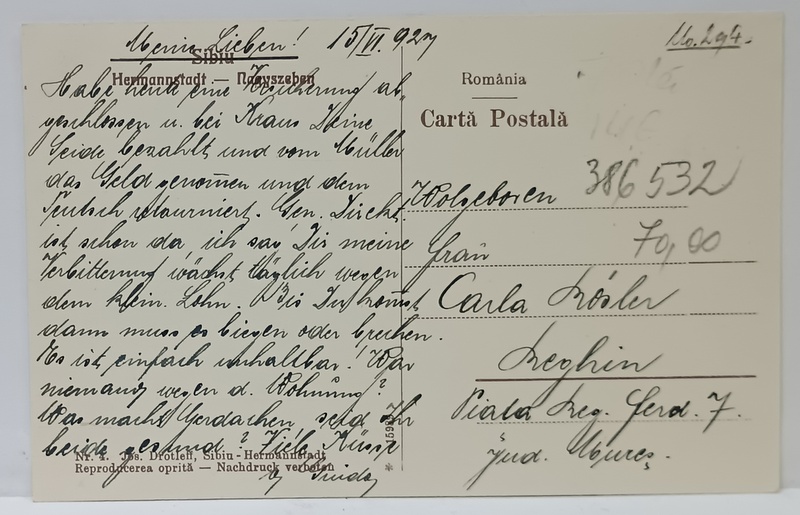 Meine Lieben! 15/VI. 927
Sibiu
Hermannstadt — Nagyszeben
Habe heute eine Versicherung ab"
geschlossen u. bei Kraus Deine
Seide bezahlt und vom Müller
das Geld genommen und dem
Teutsch retourniert. Gen. Direkt.
ist schon da ich sag' Dir meine
Verbitterung wächst täglich wegen
dem klein. Lohn. Bis Du kommst
dann muss es biegen oder brechen.
Es ist einfach unhaltbar! War
niemand wegen d. Wohnung?
Was macht Gerdachen seid Ihr
beide gesund? Viele Küsse
Nr. 4. Jos. Drotleff, Sibiu - Hermannstadt
Reproducerea oprită — Nachdruck verboten
No. 294.
România
Cartă Postală
Wolgeboren 386532
Frau 70,00
Carla Rösler
Reghin
Piata Reg. Ferd. 7.
Jud. Mureş.